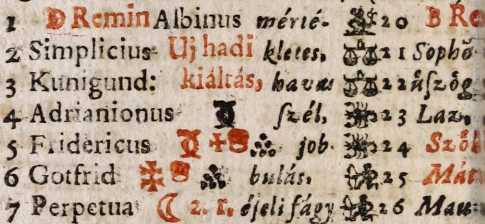 1 D Remin Albinus mérté- 20 B Re
2 Simplicius Uj hadi kletes, 21 Sophō
3 Kunigund: kiáltás, havas 22 űszög
4 Adrianionus szél, 23 Laz.
5 Fridericus job 24 Szől
6 Gotfrid bulás. 25 Mát
7 Perpetua 2. r. éjeli fágy 26 Mau